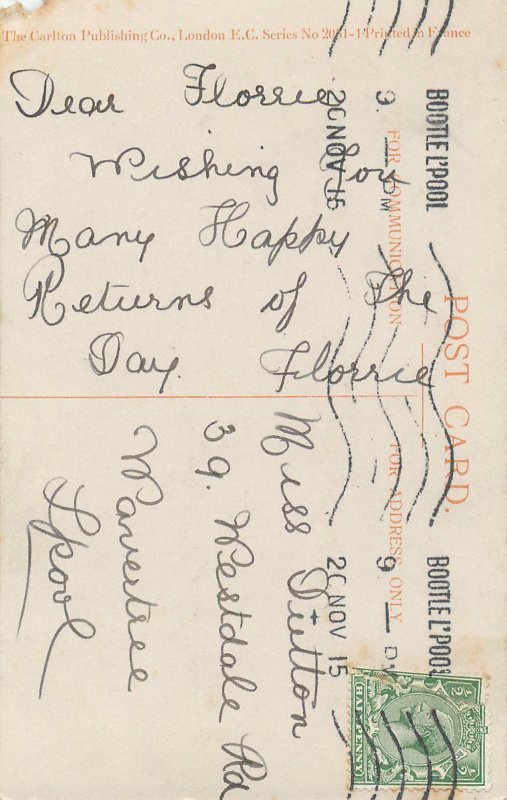 The Carlton Publishing Co., London E.C. Series No 2051-1 Printed in France
Dear Florrie
Wishing You
Many Happy
Returns of The
Day. Florrie
POST CARD.
FOR COMMUNICATION
FOR ADDRESS ONLY
BOOTLE L'POOL
9. — PM
20 NOV 15
BOOTLE L'POOL
9. — PM
20 NOV 15
Miss Dutton
39. Westdale Rd
Wavertree
Lpool
1/2 1/2
HALFPENNY